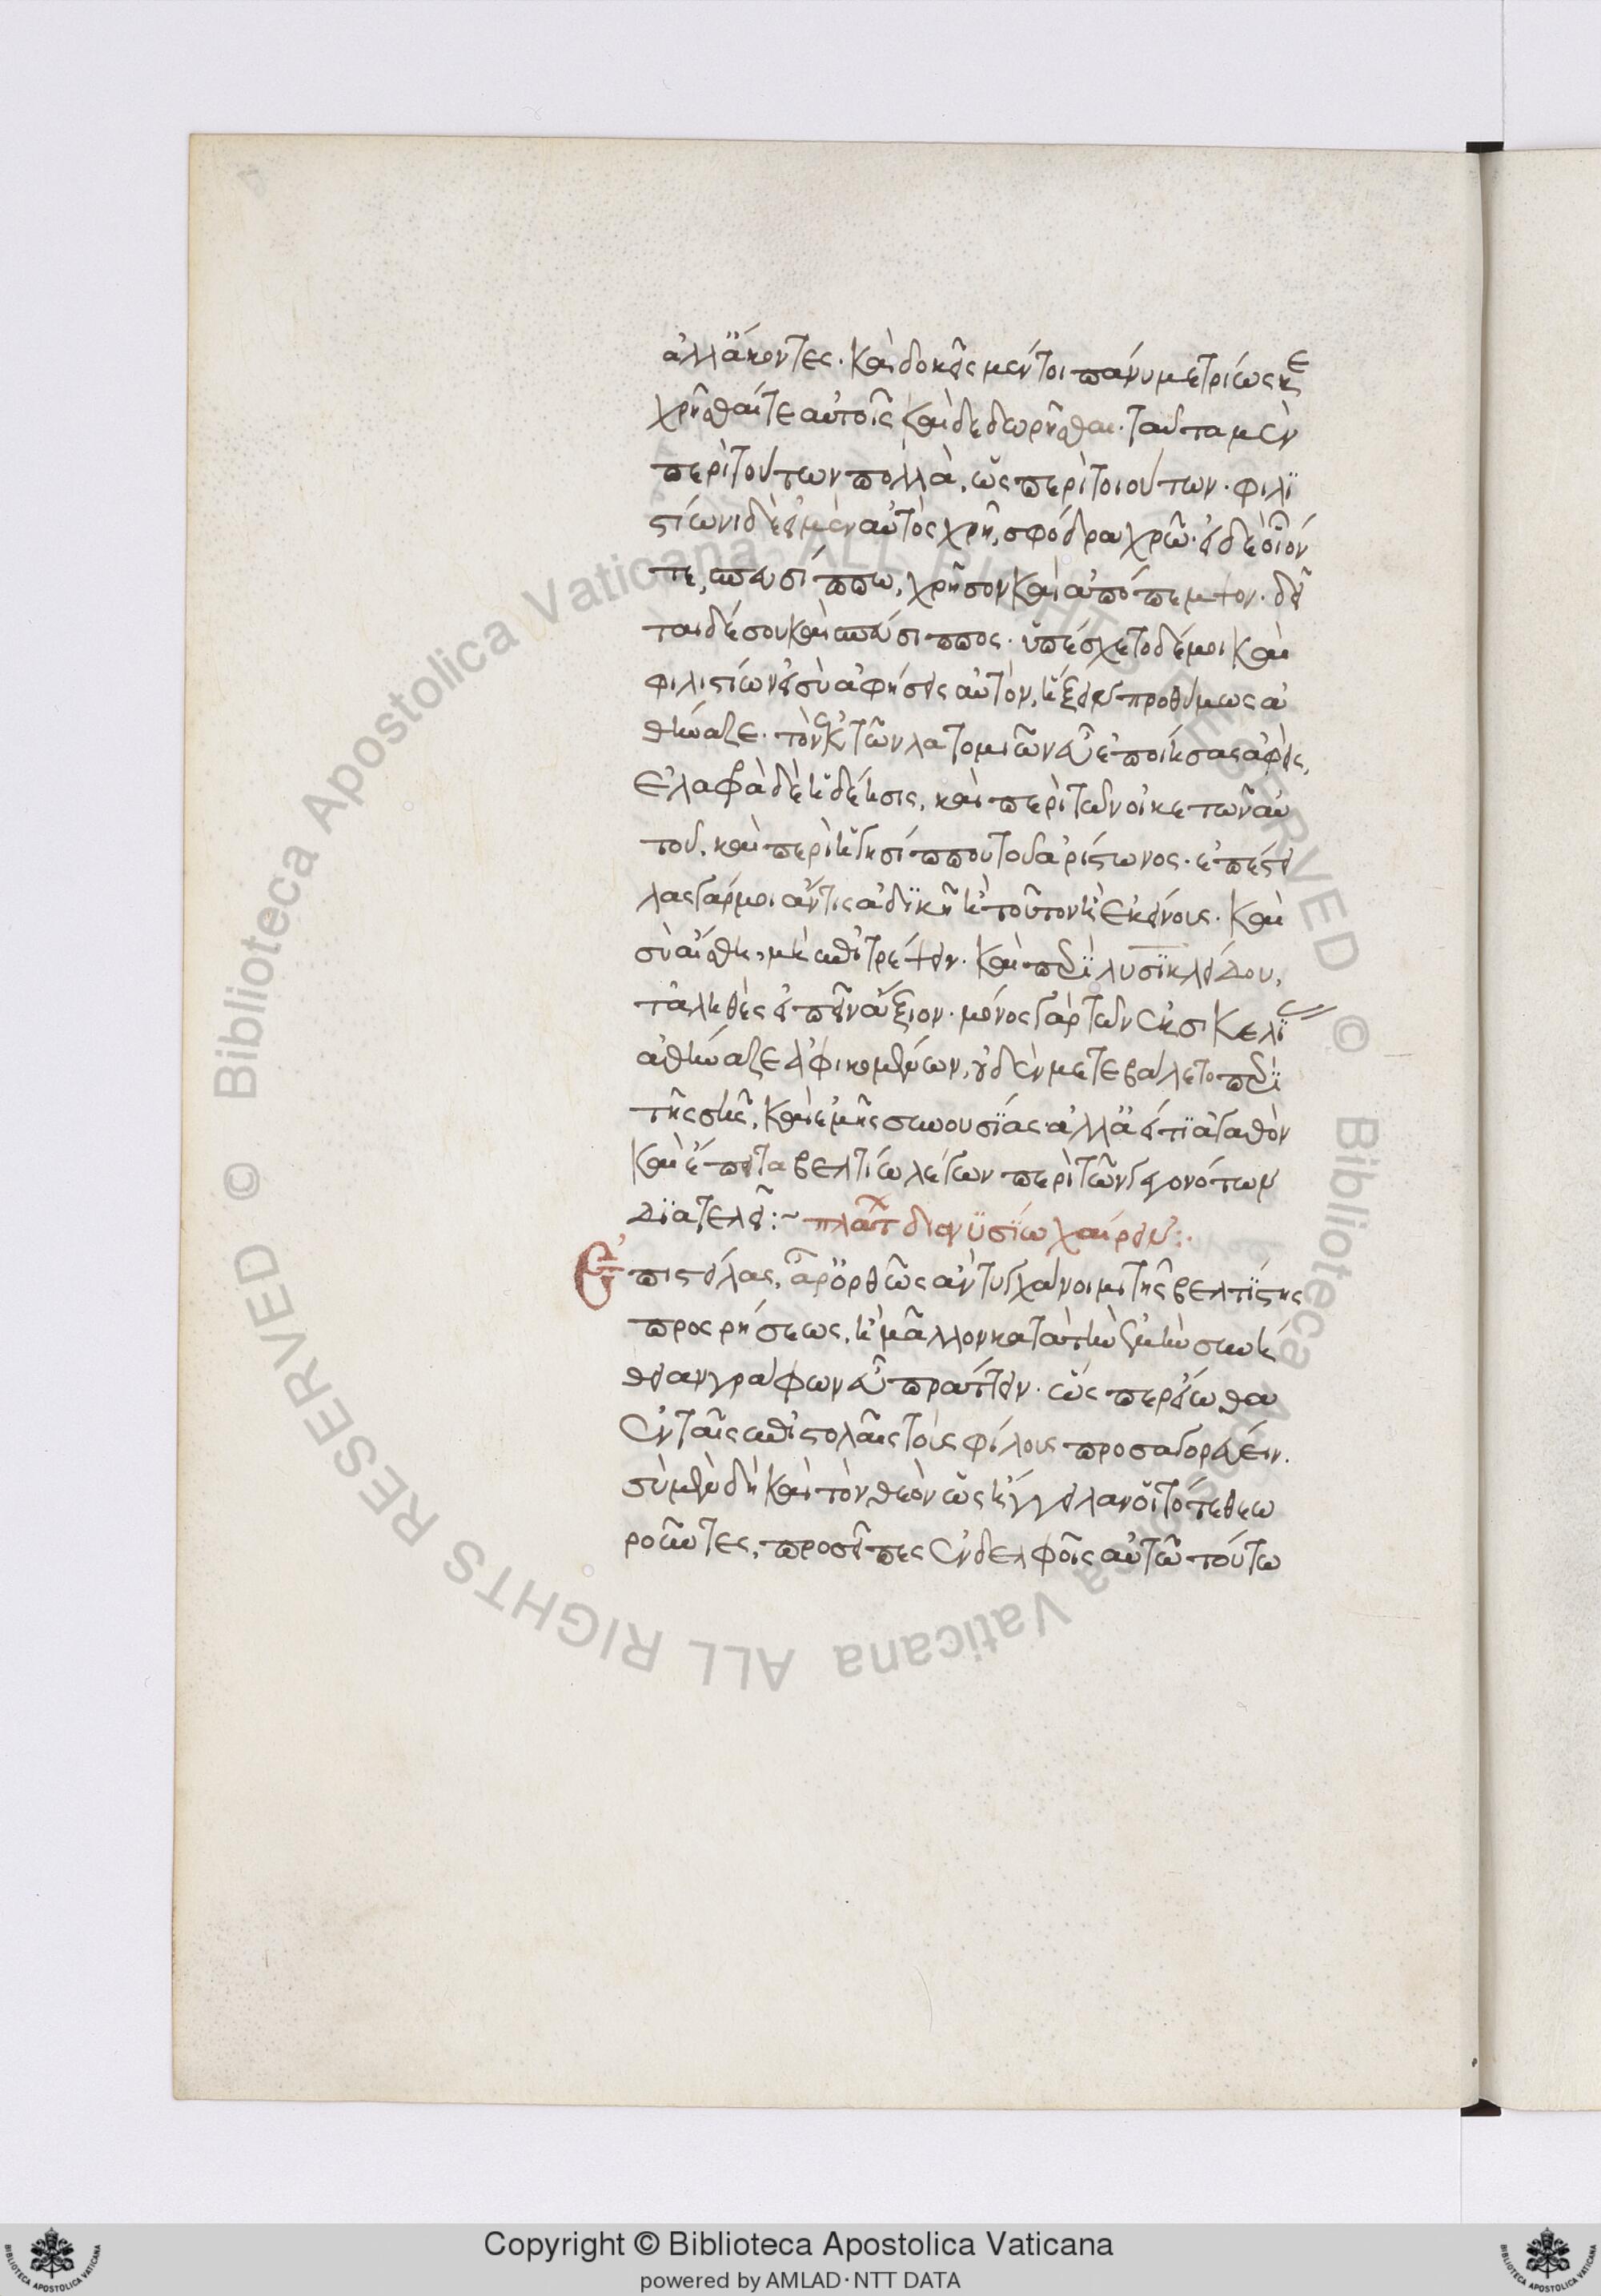 ἀλλ' ἄκοντες. καὶ δοκεῖς μέντοι πάνυ μετρίως κε
χρῆσθαί τε αὐτοῖς καὶ δεδωρῆσθαι. ταῦτα μὲν
περὶ τούτων πολλὰ, ὡς περὶ τοιούτων. φιλι
στίωνι δὲ εἰ μὲν αὐτὸς χρῆ, σφόδρα χρῶ. εἰ δὲ οἷόν
τε, σπευσίππω, χρῆσον καὶ ἀπόπεμψον. δεῖ
ται δέ σου καὶ σπεύσιππος. ὑπέσχετο δέ μοι καὶ
φιλιστίων εἰ σὺ ἀφήσεις αὐτὸν, ἥξειν προθύμως ἀ
θήναζε. τὸν ἐκ τῶν λατομιῶν εὖ ἐποίησας ἀφείς,
ἐλαφρὰ δὲ ἡ δέησις, καὶ περὶ τῶν οἰκετῶν αὐ
τοῦ, καὶ περὶ ἡγησίππου τοῦ ἀρίστωνος. ἐπέστει
λας γάρ μοι ἄν τις ἀδικῇ ἢ τοῦτον ἢ ἐκείνους. καὶ
σὺ αἴσθη, μὴ ἐπιτρέψειν. καὶ περὶ λυσικλείδου,
τἀληθὲς εἰπεῖν ἄξιον. μόνος γὰρ τῶν ἐκ σικελί
ἀθήναζε ἀφικομένων, οὐδὲν μετεβάλετο περὶ
τῆς σῆς, καὶ ἐμῆς συνουσίας ἀλλ' ἀεί τι ἀγαθὸν
καὶ ἐπὶ τὰ βελτίω λέγων περὶ τῶν γεγονότων
διατελεῖ:~ πλάτ διονυσίω χαίρειν:.
Ἐπιστείλας, ἆρ' ὀρθῶς ἂν τυγχάνοιμι τῆς βελτίστης
προσρήσεως, ἢ μᾶλλον κατὰ τὴν ἐμὴν συνή
θειαν γράφων εὖ πράττειν. ὥσπερ εἴωθα
ἐν ταῖς ἐπιστολαῖς τοὺς φίλους προσαγορεύειν.
σὺ μὲν δὴ καὶ τὸν θεὸν ὡς ἤγγειλαν οἱ τότε θεω
ροῦντες, προσεῖπες ἐν δελφοῖς αὐτῶ τούτω